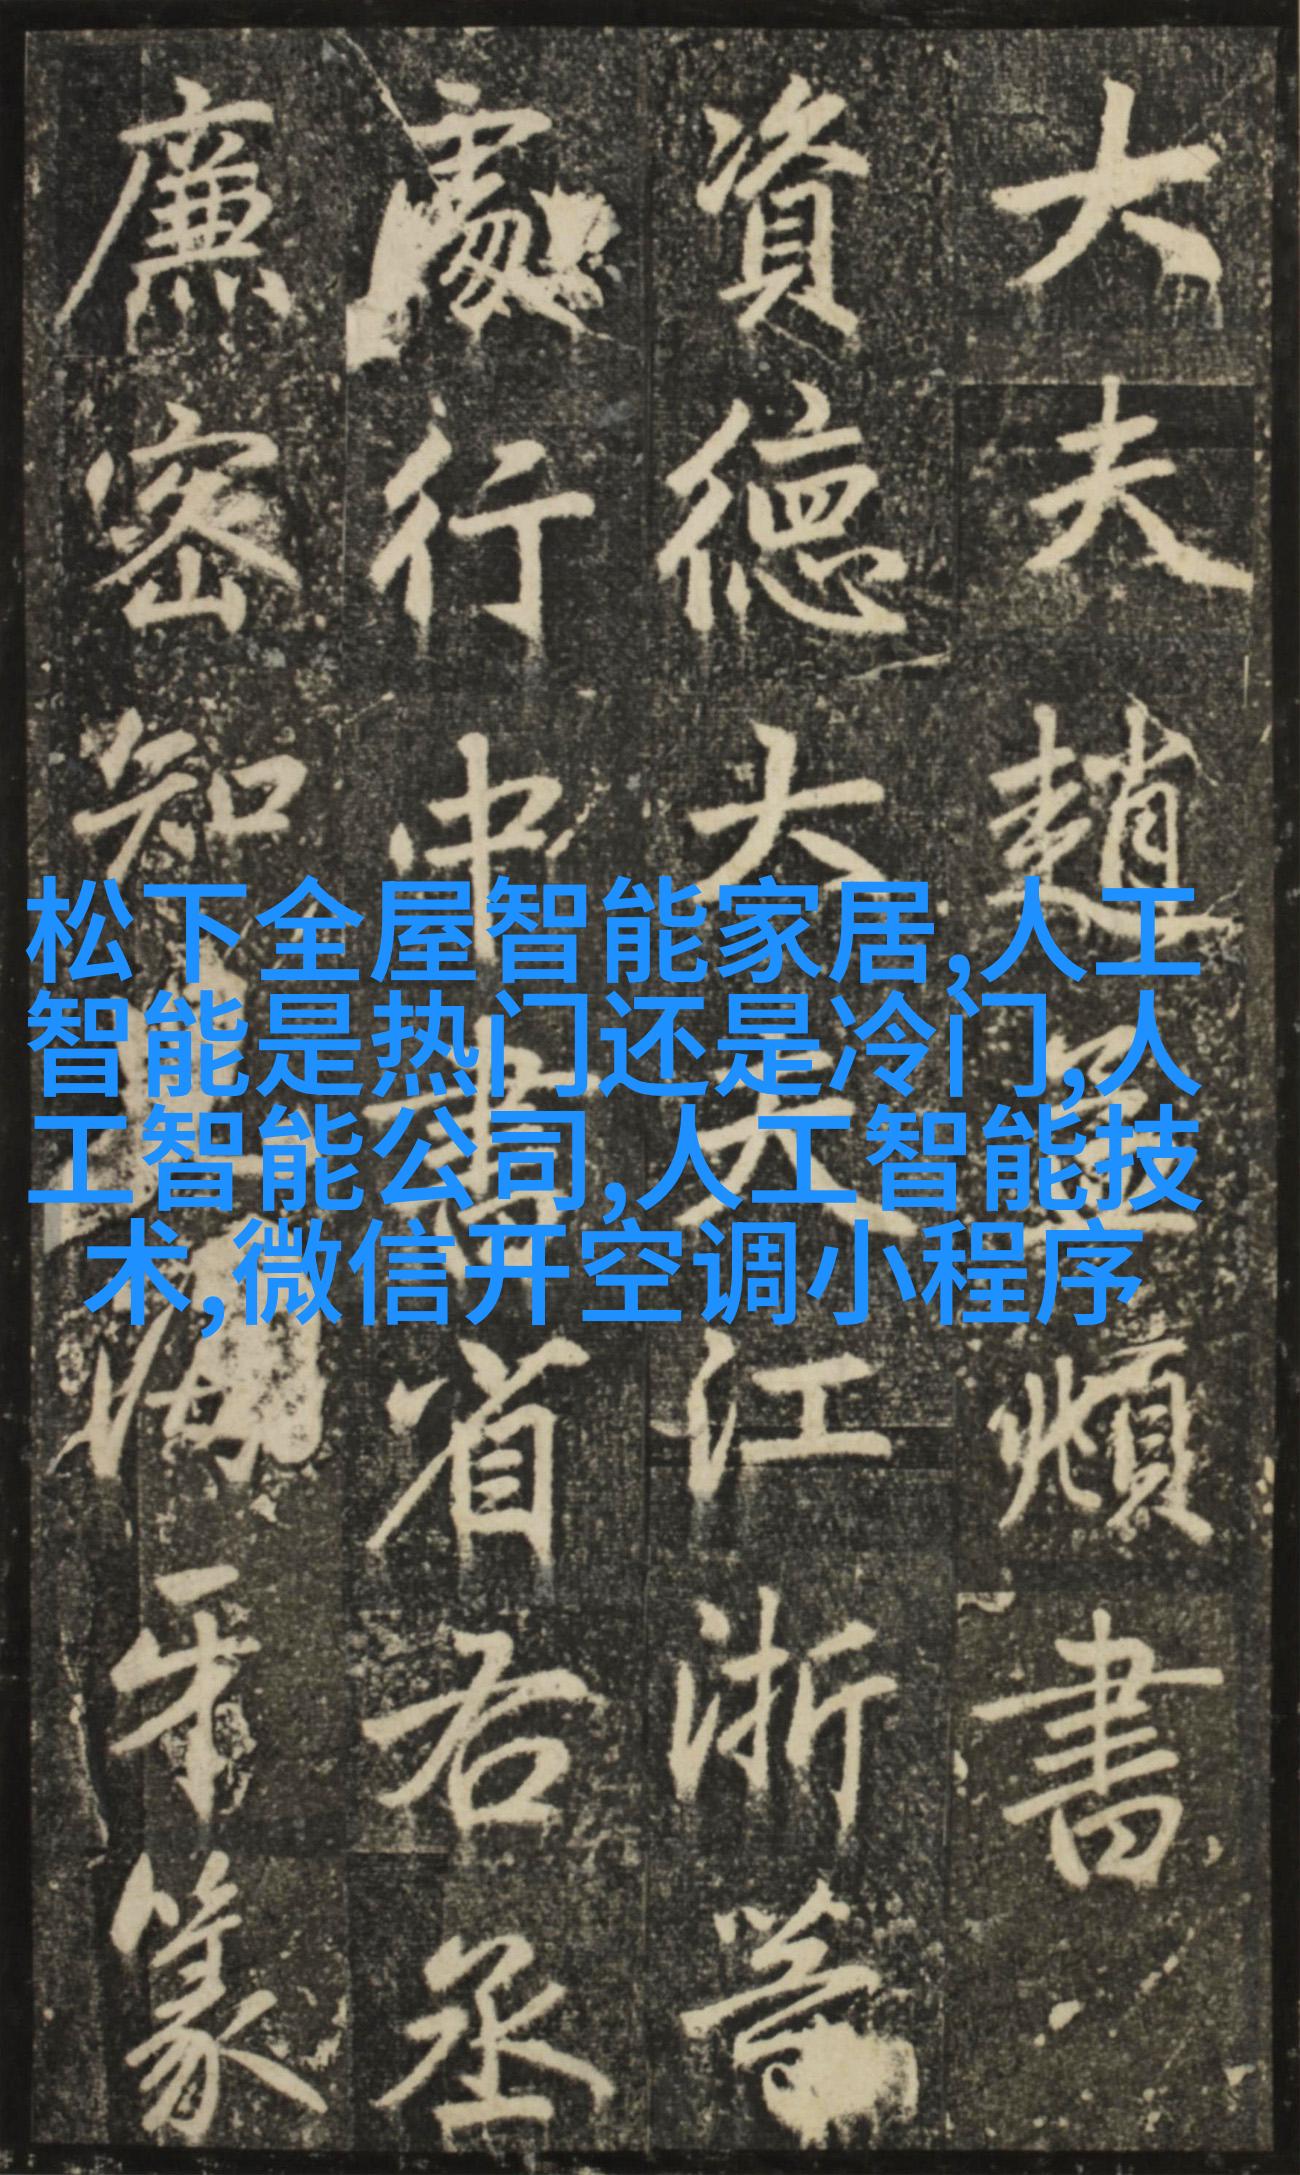 松下全屋智能家居,人工
智能是热门还是冷门,人
工智能公司,人工智能技
术,微信开空调小程序
大夫趙孟頫書
資德大夫江浙等
處行中書省右丞
廉密知海牙篆